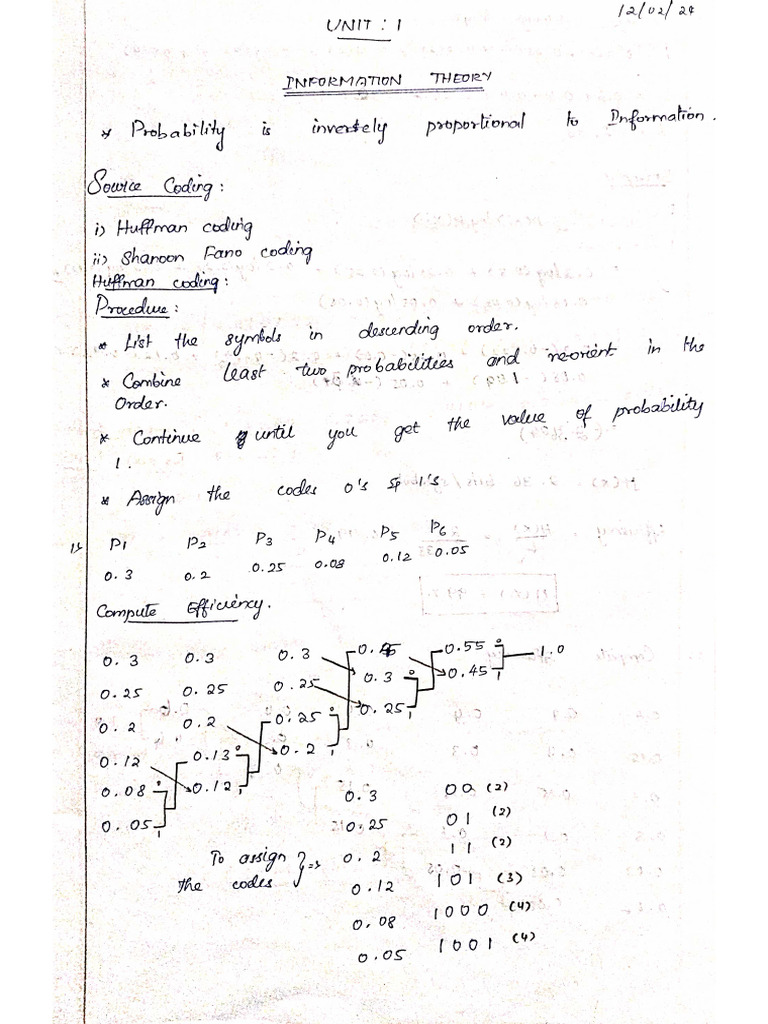 12/02/24
UNIT : 1
INFORMATION THEORY
* Probability is inversely proportional to Information.
Source Coding :
i) Huffman coding
ii) Shanoon Fano coding
Huffman coding :
Procedure :
* List the symbols in descending order.
* Combine least two probabilities and reorient in the
Order.
* Continue until you get the value of probability
1.
* Assign the codes 0's & 1's
1) P1 P2 P3 P4 P5 P6
0.3 0.2 0.25 0.08 0.12 0.05
Compute Efficiency.
0.3 0.3 0.3 0.45 0.55 0 1.0
0.25 0.25 0.25 0.3 0 0.45 1
0.2 0.2 0.25 0 0.25 1
0.12 0.13 0 0.2 1
0.08 0 0.12 1
0.05 1
To assign the codes } =>
0.3 00 (2)
0.25 01 (2)
0.2 11 (2)
0.12 101 (3)
0.08 1000 (4)
0.05 1001 (4)